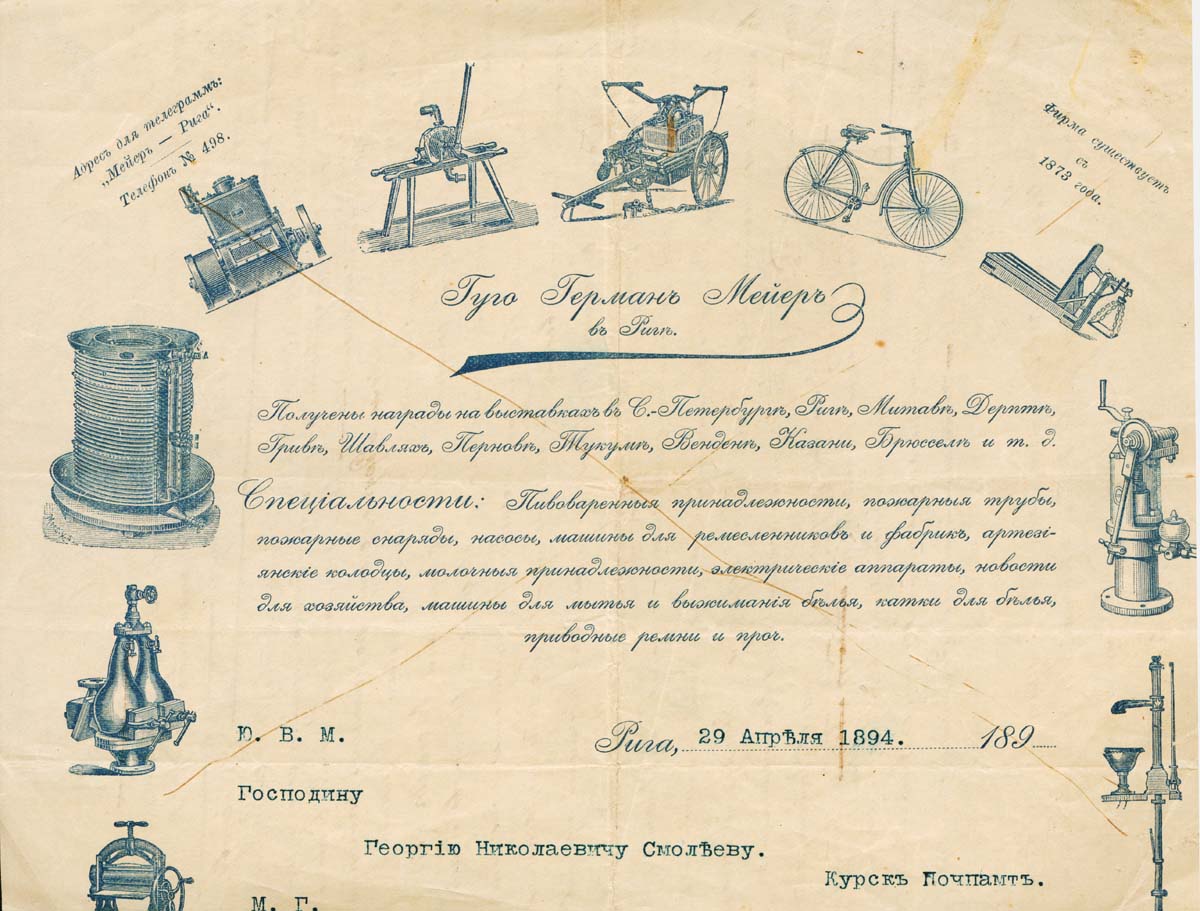 Адресъ для телеграммъ:
„Мейеръ — Рига“.
Телефонъ № 498.
Фирма существуетъ
съ
1873 года.
Гуго Германъ Мейеръ
въ Ригѣ.
Получены награды на выставкахъ въ С.-Петербургѣ, Ригѣ, Митавѣ, Дерптѣ,
Гривѣ, Шавляхъ, Перновѣ, Тукумѣ, Венденѣ, Казани, Брюсселѣ и т. д.
Спеціальности: Пивоваренныя принадлежности, пожарныя трубы,
пожарные снаряды, насосы, машины для ремесленниковъ и фабрикъ, артезі-
янскіе колодцы, молочныя принадлежности, электрическіе аппараты, новости
для хозяйства, машины для мытья и выжиманія бѣлья, катки для бѣлья,
приводные ремни и проч.
Ю. В. М.
Рига, 29 Апрѣля 1894. 189
Господину
Георгію Николаевичу Смолѣеву.
Курскъ Почпамтъ.
М. Г.